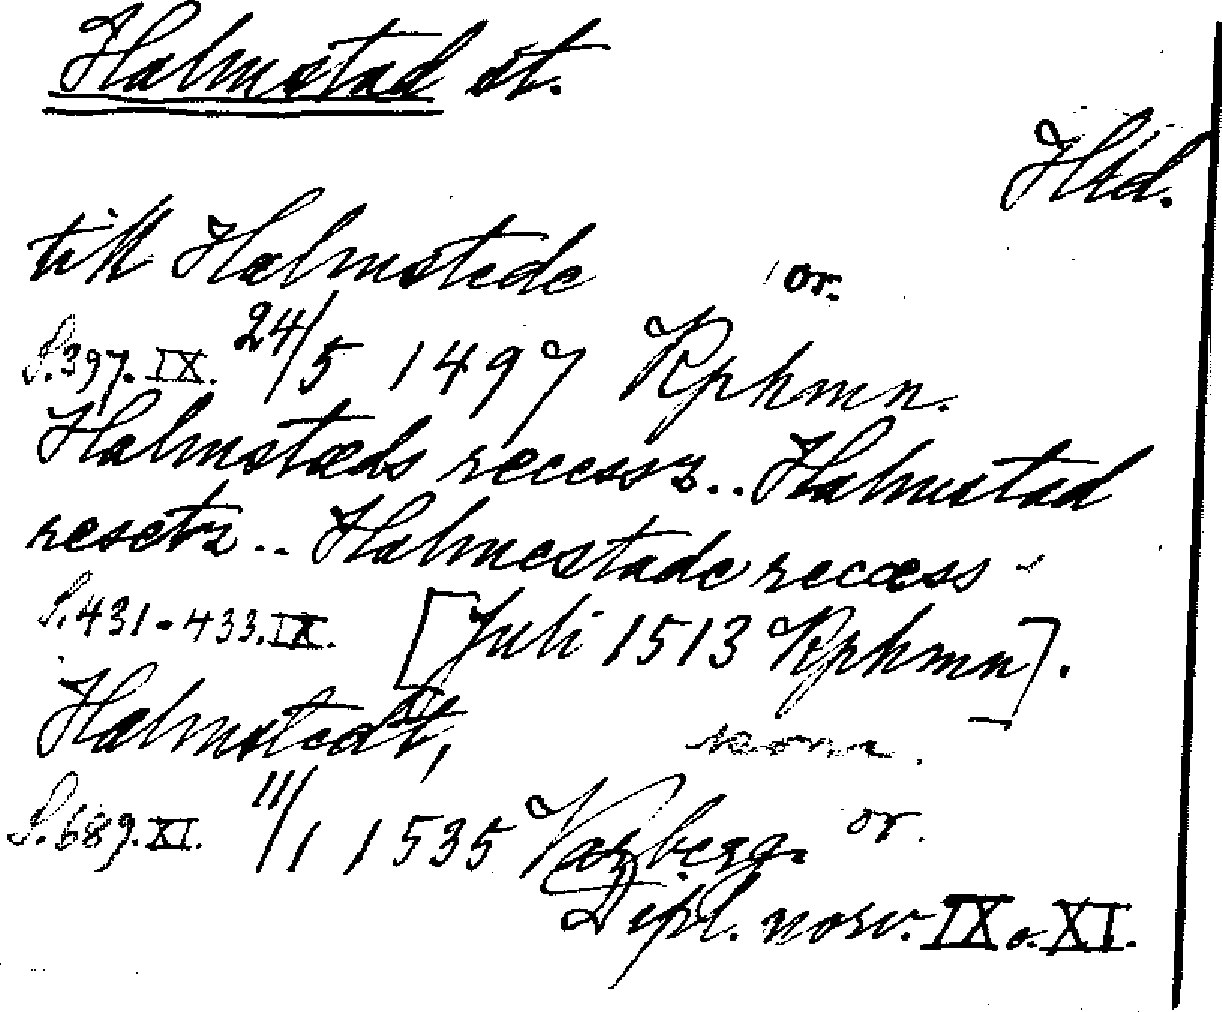 Halmstad st.
Hld.
till Halmstede or.
S. 397. IX. 24/5 1497 Kphmn.
Halmstæds recessz.. Halmstad
resetz.. Halmestade recæss
S. 431-433. IX. [Juli 1513 Kphmn].
Halmstedt, kom.
S. 689. XI. 11/1 1535 Varberg. or.
Dipl. norv. IX o. XI.